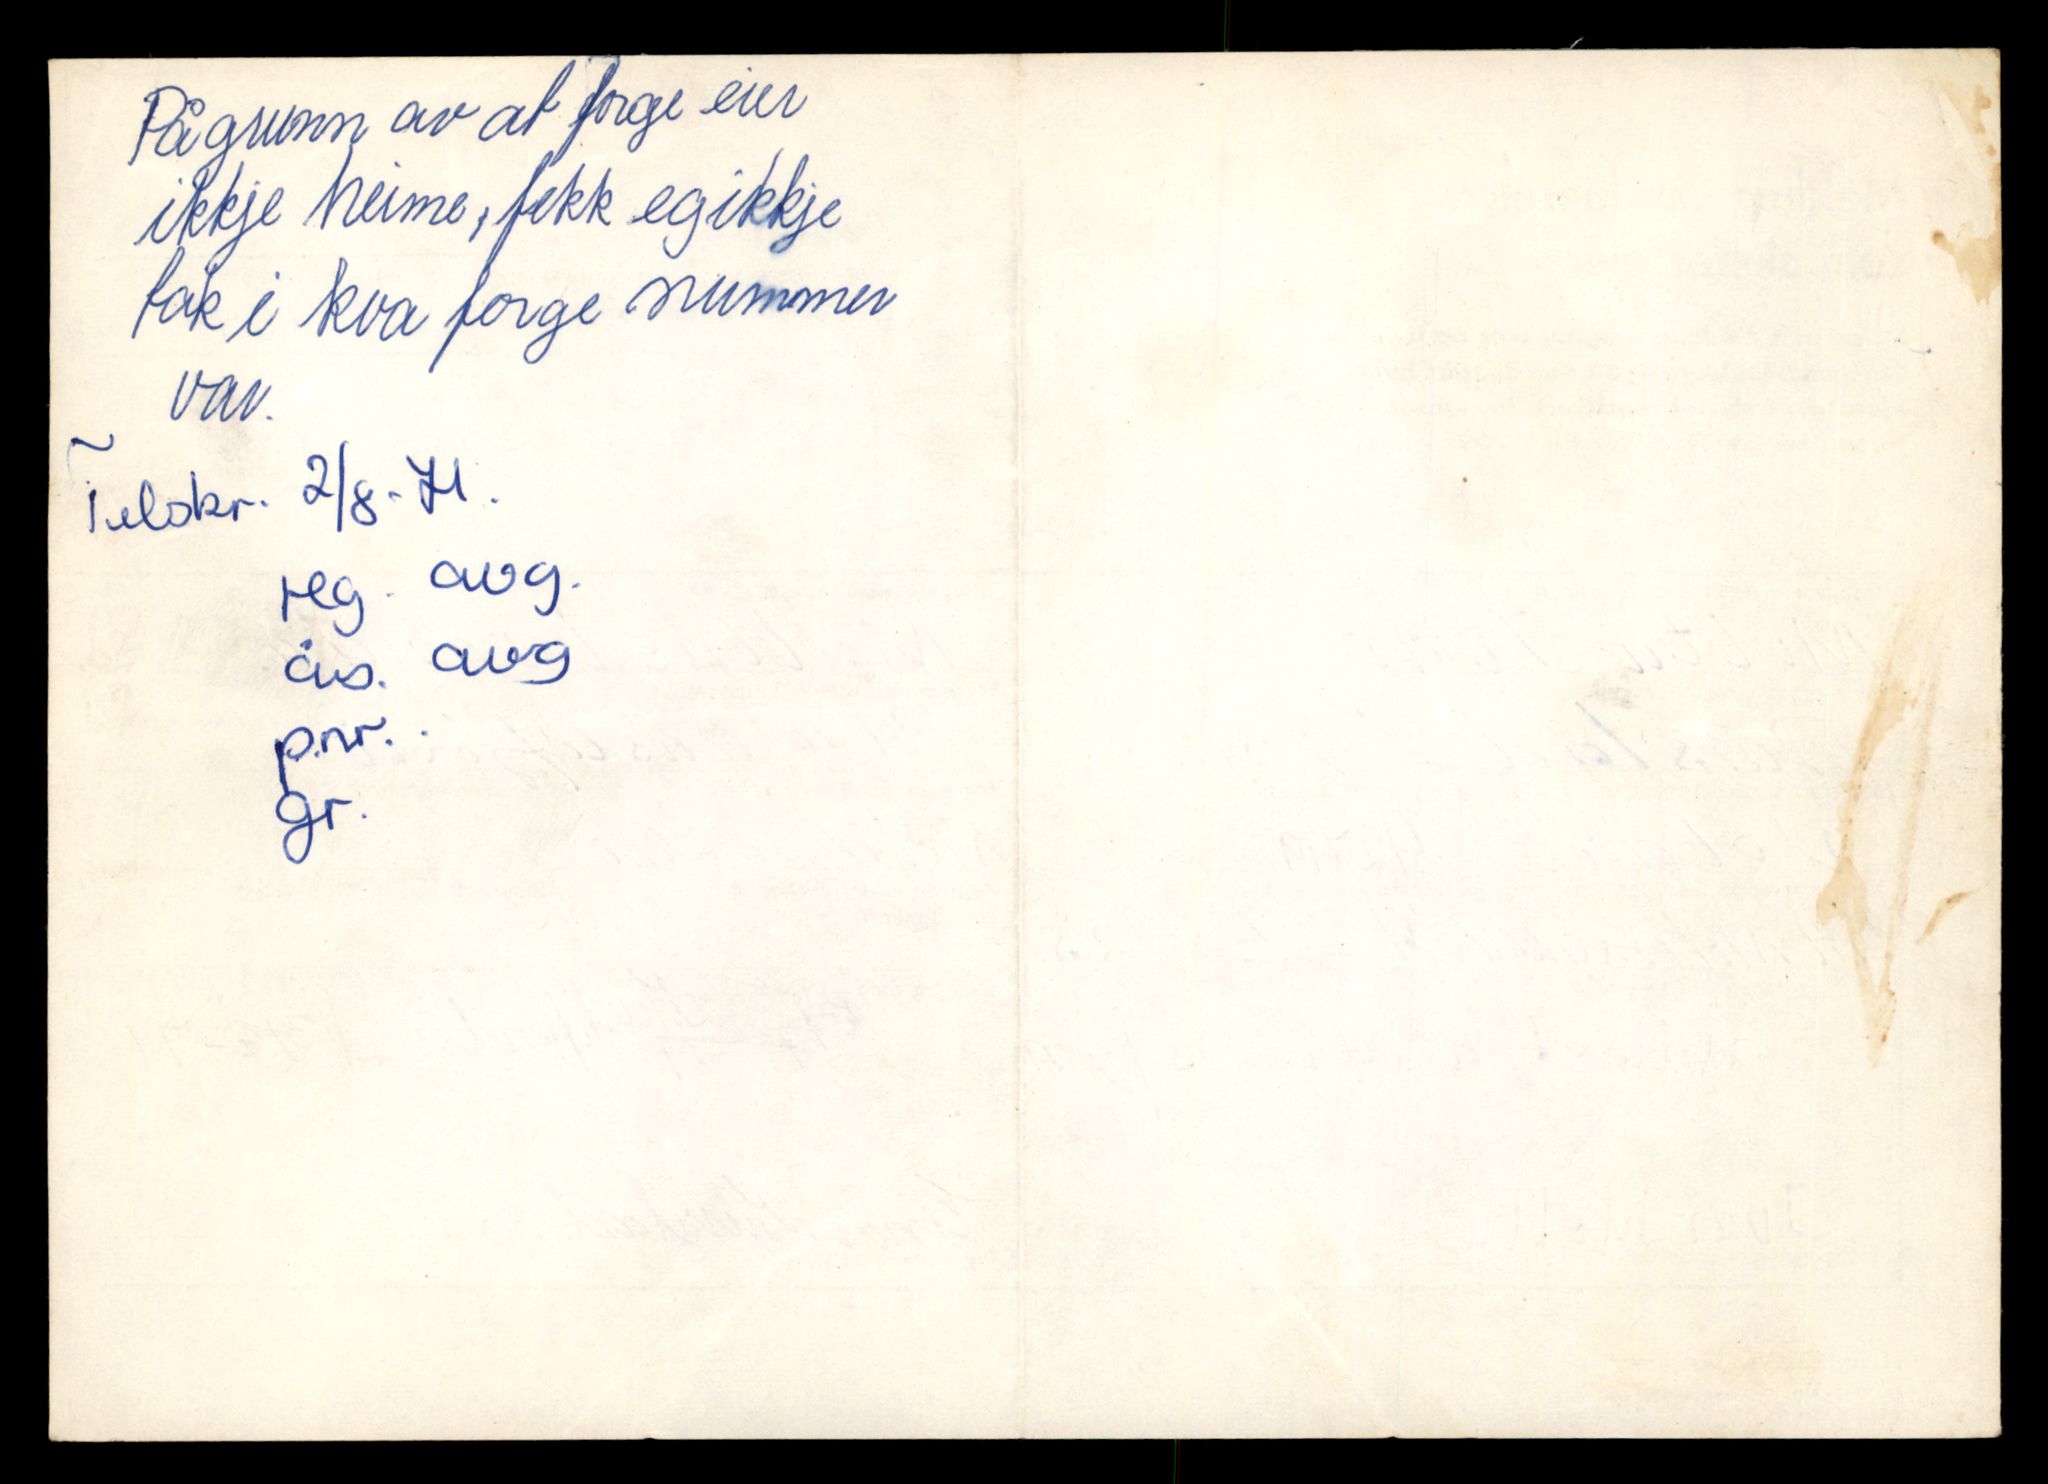 På grunn av at forge eier
ikkje heime, fekk eg ikkje
tak i kva forge nummer
var.
Tilskr. 2/8-71.
reg. avg.
års. avg
p.nr.
gr.